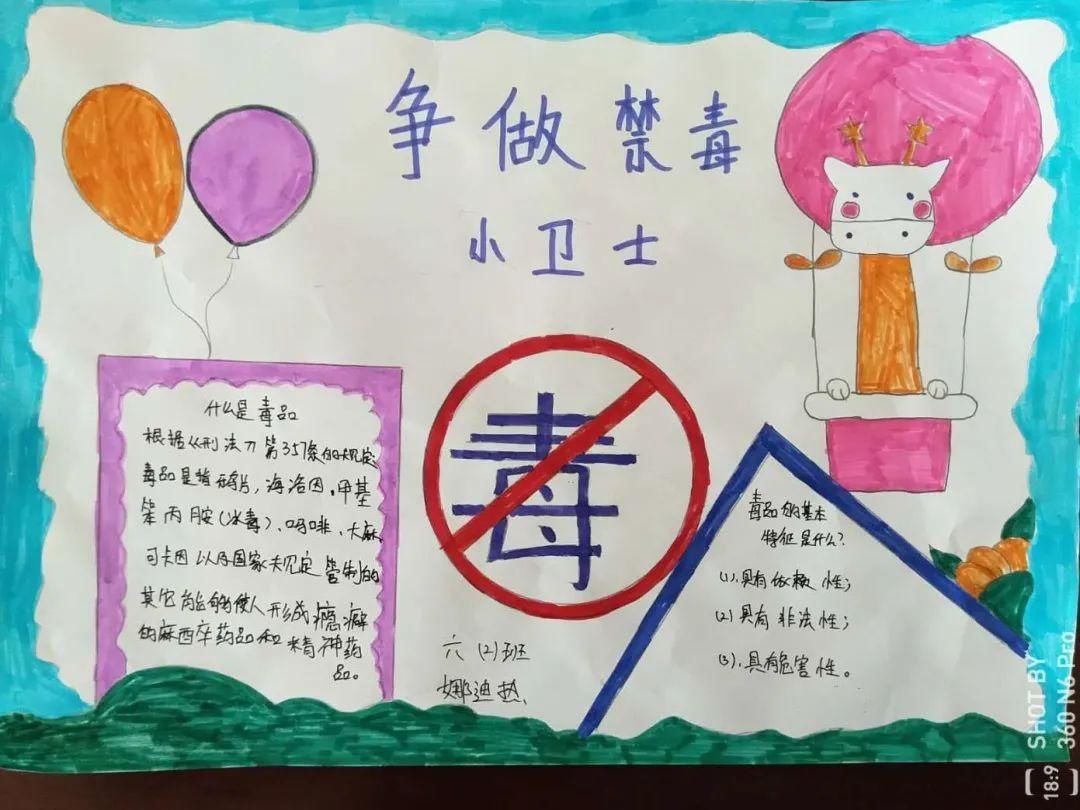 争做禁毒
小卫士
什么是毒品
根据《刑法》第357条的规定
毒品是指鸦片，海洛因，甲基
笨丙胺(冰毒)、吗啡、大麻
可卡因以及国家规定管制的
其它能够使人形成瘾癖
的麻西卒药品和精神药
品。
毒
六(2)班
娜迪热
毒品的基本
特征是什么?
(1).具有依赖性;
(2)具有非法性;
(3).具有危害性。
SHOT BY
360 N6 Pro
18:9